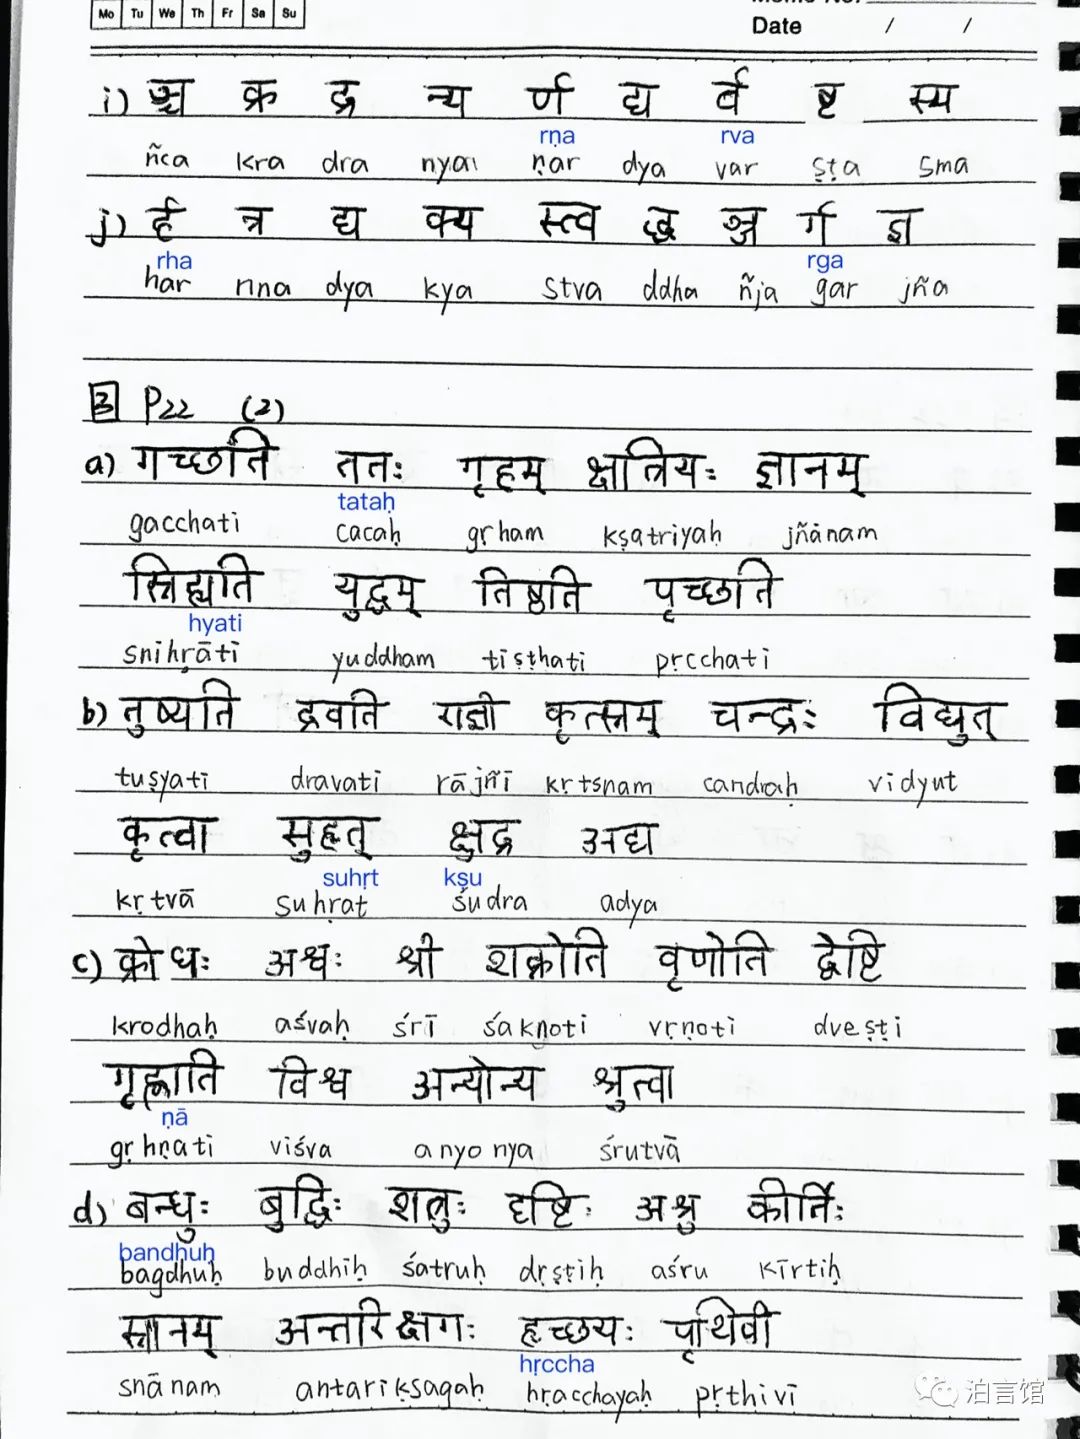 Mo Tu We Th Fr Sa Su
Date / /
i) ञ्च क्र द्र न्य र्ण द्य र्व ष्ट स्म
rṇa rva
ñca kra dra nya ṇar dya var ṣṭa sma
j) र्ह न्न द्य क्य स्त्व द्ध ञ्ज र्ग ज्ञ
rha rga
har nna dya kya stva ddha ñja gar jña
3 P22 (2)
a) गच्छति ततः गृहम् क्षत्रियः ज्ञानम्
tataḥ
gacchati cacaḥ gṛham kṣatriyaḥ jñānam
स्निह्यति युद्धम् तिष्ठति पृच्छति
hyati
snihṛāti yuddham tiṣṭhati pṛcchati
b) तुष्यति द्रवति राज्ञी कृत्स्नम् चन्द्रः विद्युत्
tuṣyati dravati rājñī kṛtsnam candraḥ vidyut
कृत्वा सुहृत् क्षुद्र अद्य
suhṛt kṣu
kṛtvā suhṛat śudra adya
c) क्रोधः अश्वः श्री शक्नोति वृणोति द्वेष्टि
krodhaḥ aśvaḥ śrī śakṇoti vṛṇoti dveṣṭi
गृह्णाति विश्व अन्योन्य श्रुत्वा
ṇā
gṛhṇati viśva anyonya śrutvā
d) बन्धुः बुद्धिः शत्रुः दृष्टिः अश्रु कीर्तिः
bandhuḥ
bagdhuḥ buddhiḥ śatruḥ dṛṣṭiḥ aśru kīrtiḥ
स्नानम् अन्तरिक्षगः हृच्छयः पृथिवी
hṛccha
snānam antarikṣagaḥ hṛacchayaḥ pṛthivī
泊言馆